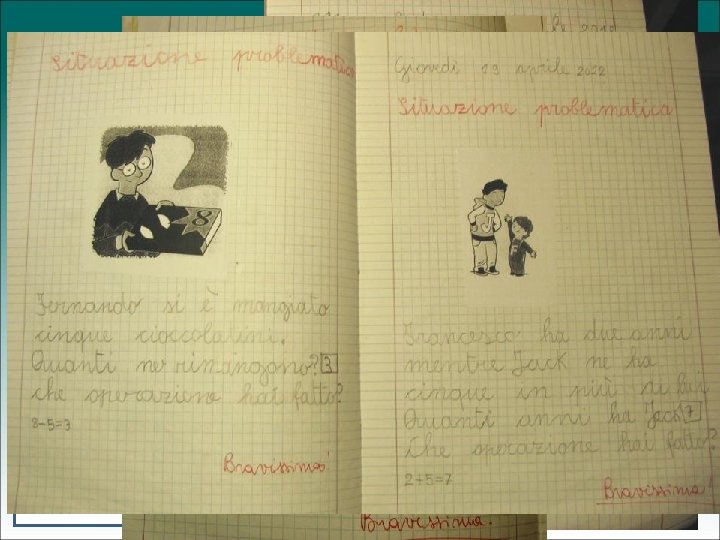 Situazione problematica
8
Fernando si è mangiato
cinque cioccolatini.
Quanti ne rimangono? 3
che operazione hai fatto?
8-5=3
Bravissima!
Giovedì 19 aprile 2012
Situazione problematica
J
F
Francesco ha due anni
mentre Jack ne ha
cinque in più di lui
Quanti anni ha Jack 7
Che operazione hai fatto?
2+5=7
Bravissima
Bravissima.